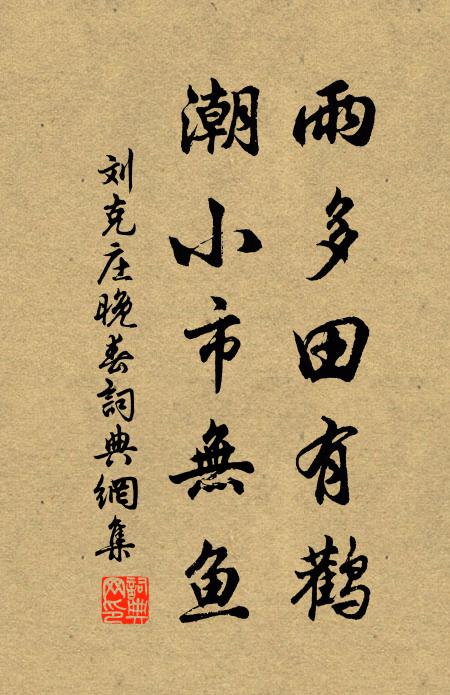 雨多田有鹳
潮小市無鱼
刘克庄晚春詞典網集
詞典网印